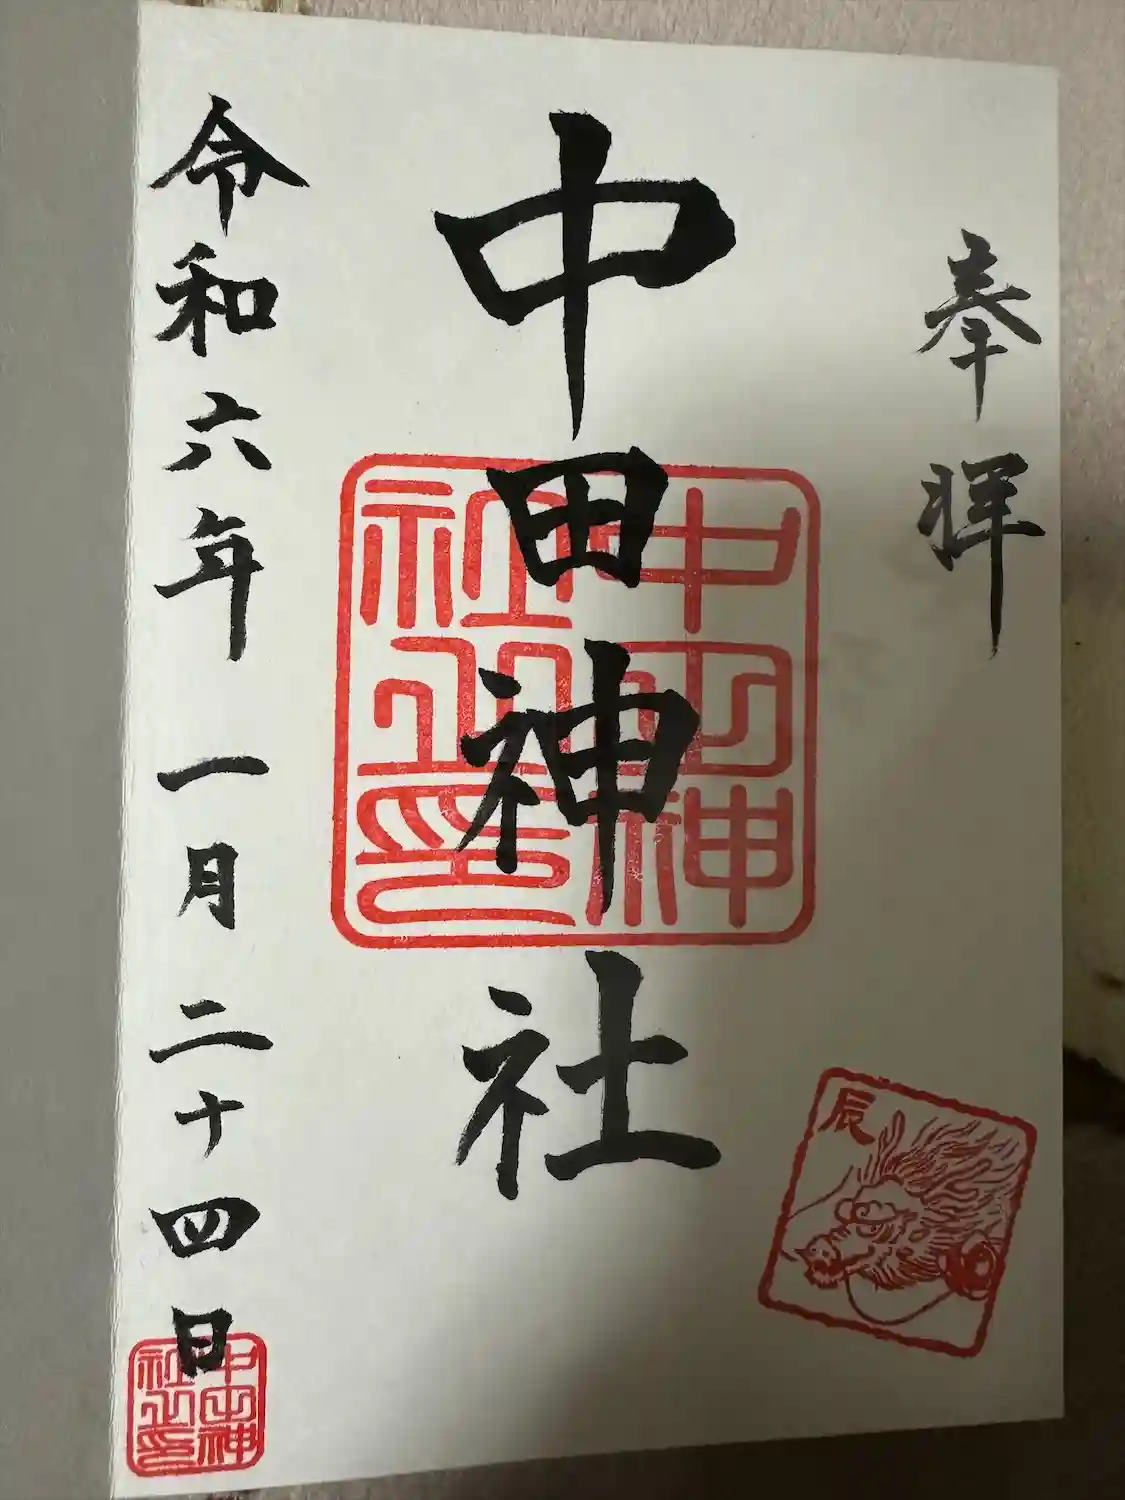 奉暉
中田神社
中山神
社之印
令和六年一月二十四日
中山神
社之印
辰